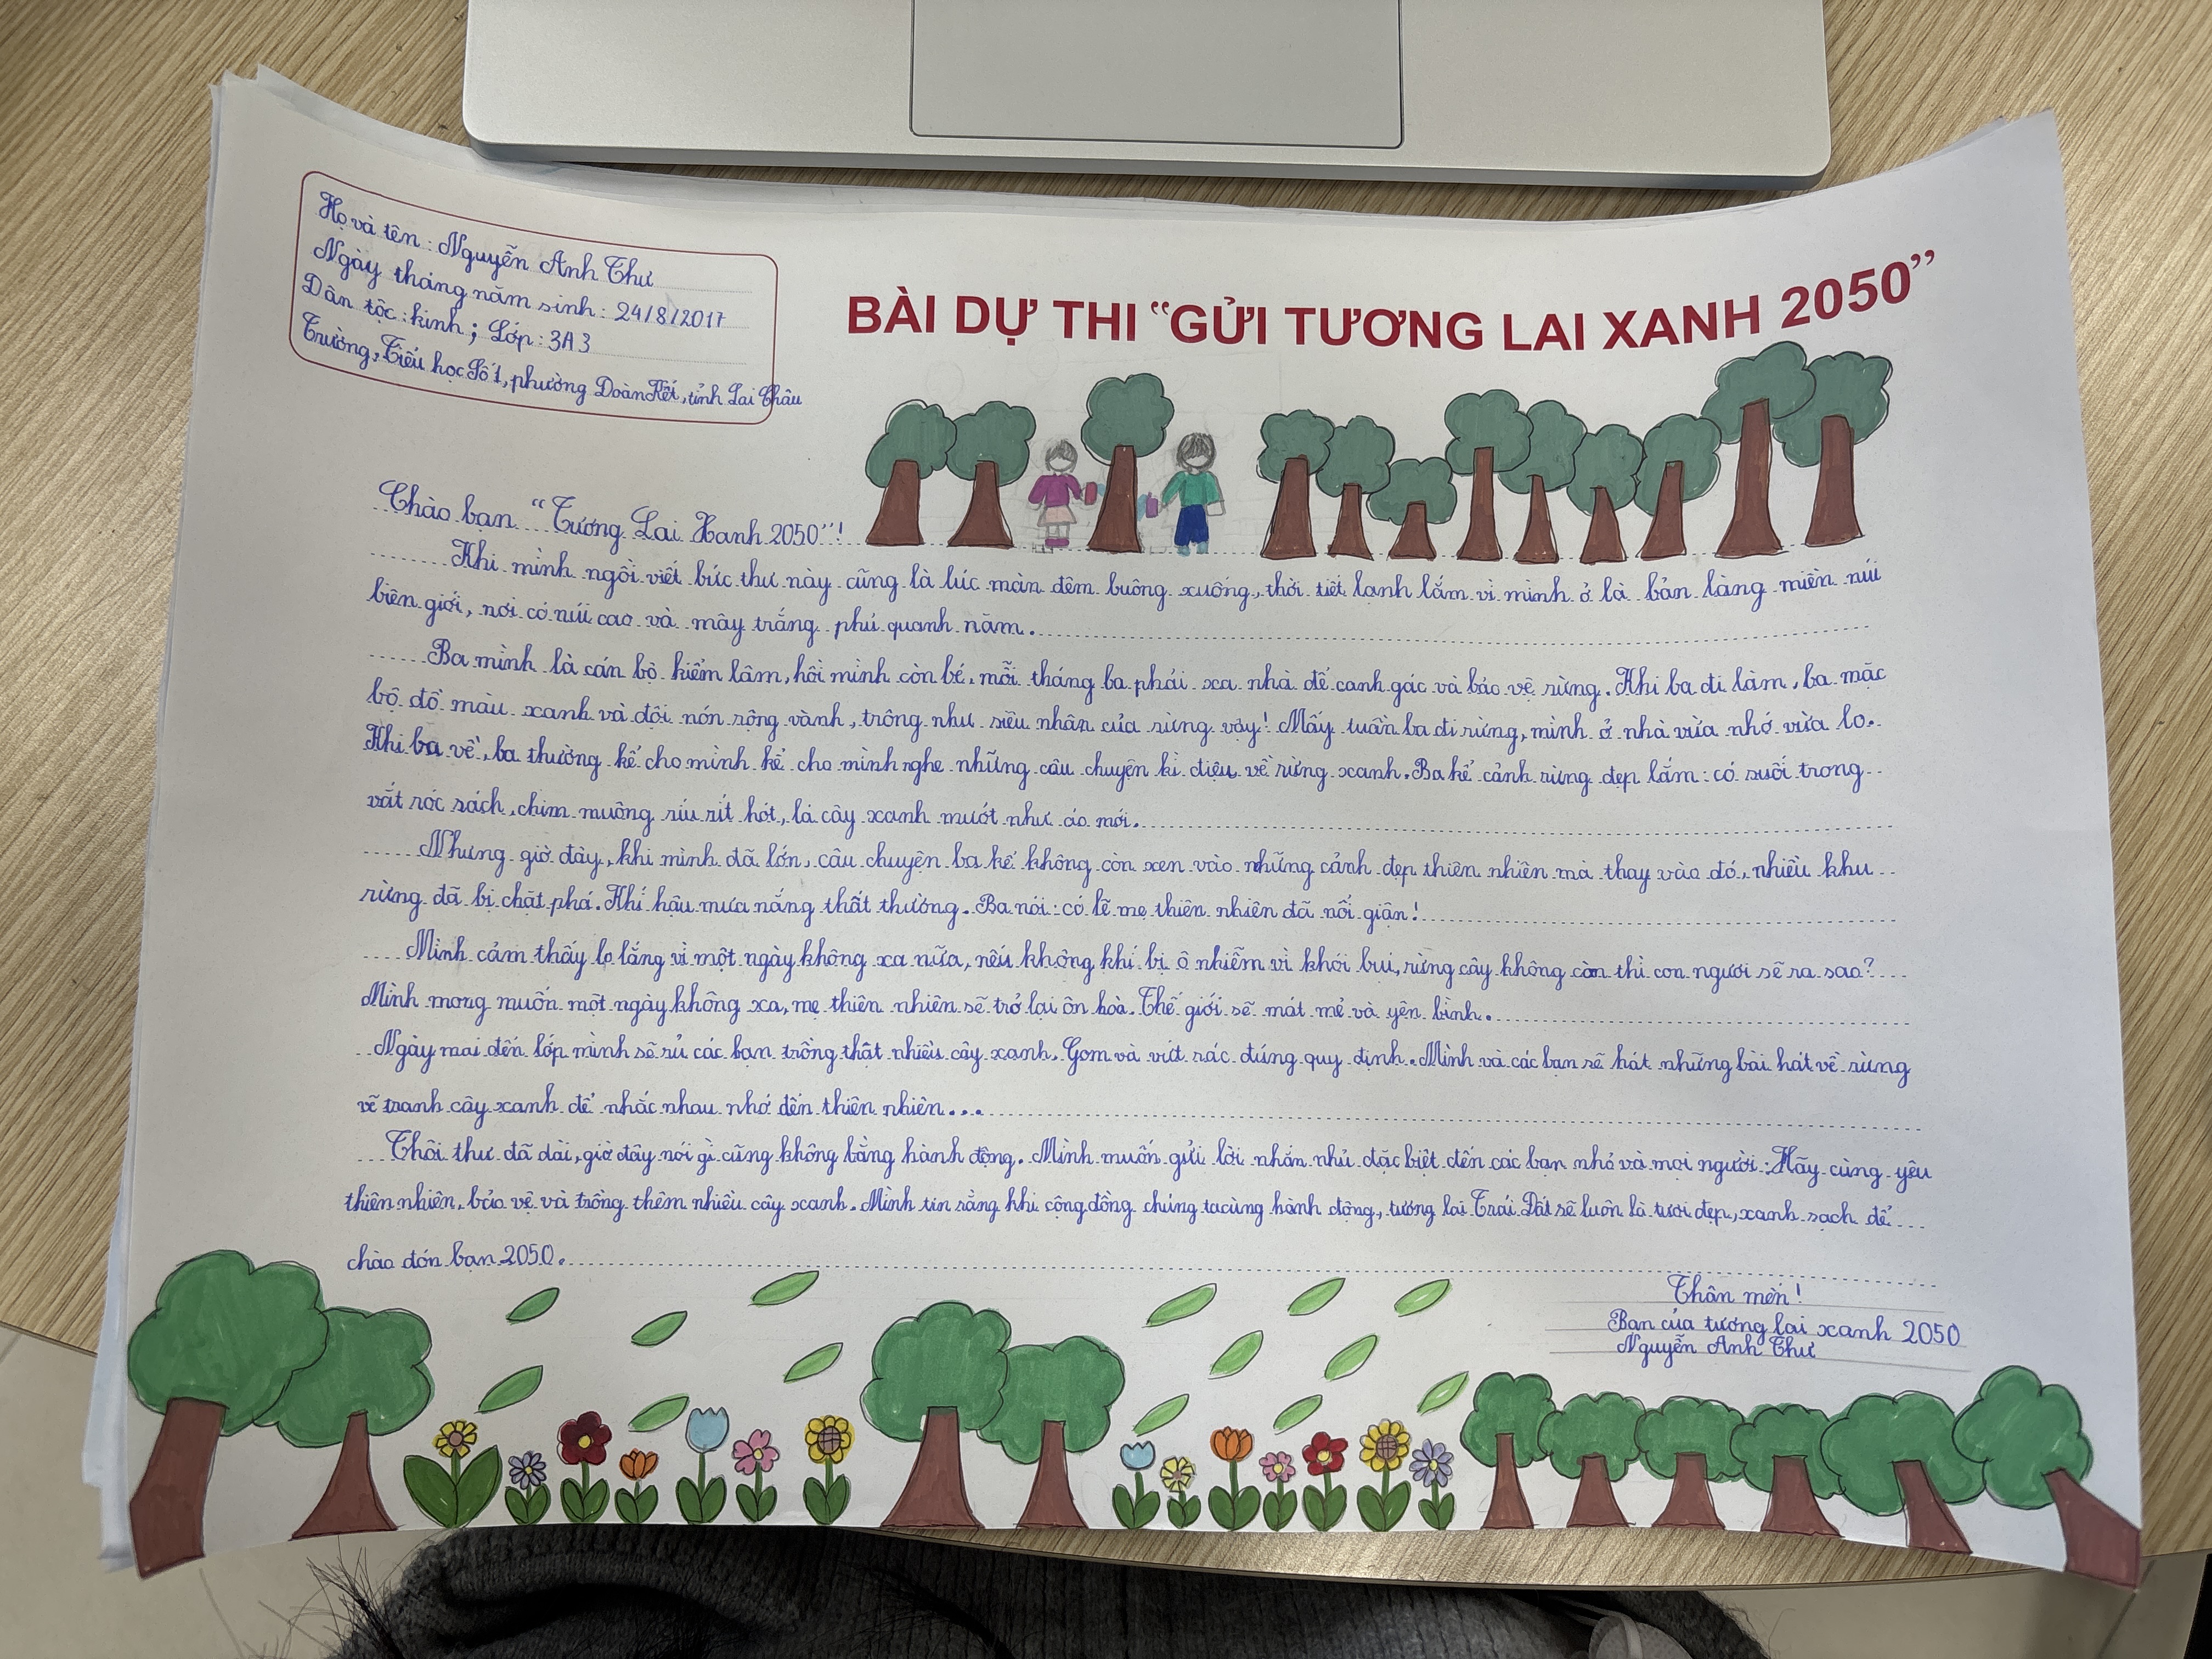 Họ và tên: Nguyễn Anh Thư
Ngày tháng năm sinh: 24/8/2017
Dân tộc: kinh; Lớp: 3A3
Trường, Tiểu học Số 1, phường Đoàn Kết, tỉnh Lai Châu
BÀI DỰ THI “GỬI TƯƠNG LAI XANH 2050”
Chào bạn “Tương Lai Xanh 2050”!
Khi mình ngồi viết bức thư này cũng là lúc màn đêm buông xuống, thời tiết lạnh lắm vì mình ở là bản làng miền núi
biên giới, nơi có núi cao và mây trắng phủ quanh năm.
Ba mình là cán bộ kiểm lâm, hồi mình còn bé, mỗi tháng ba phải xa nhà để canh gác và bảo vệ rừng. Khi ba đi làm, ba mặc
bộ đồ màu xanh và đội nón rộng vành, trông như siêu nhân của rừng vậy! Mấy tuần ba đi rừng, mình ở nhà vừa nhớ vừa lo.
Khi ba về, ba thường kể cho mình kể cho mình nghe những câu chuyện kì diệu về rừng xanh. Ba kể cảnh rừng đẹp lắm: có suối trong
vắt róc rách, chim muông ríu rít hót, lá cây xanh mướt như áo mới.
Nhưng giờ đây, khi mình đã lớn, câu chuyện ba kể không còn xen vào những cảnh đẹp thiên nhiên mà thay vào đó, nhiều khu
rừng đã bị chặt phá. Khí hậu mưa nắng thất thường. Ba nói: có lẽ mẹ thiên nhiên đã nổi giận!
Mình cảm thấy lo lắng vì một ngày không xa nữa, nếu không khí bị ô nhiễm vì khói bụi, rừng cây không còn thì con người sẽ ra sao?
Mình mong muốn một ngày không xa, mẹ thiên nhiên sẽ trở lại ôn hòa. Thế giới sẽ mát mẻ và yên bình.
Ngày mai đến lớp mình sẽ rủ các bạn trồng thật nhiều cây xanh. Gom và vứt rác đúng quy định. Mình và các bạn sẽ hát những bài hát về rừng
vẽ tranh cây xanh để nhắc nhau nhớ đến thiên nhiên...
Thôi thư đã dài, giờ đây nói gì cũng không bằng hành động. Mình muốn gửi lời nhắn nhủ đặc biệt đến các bạn nhỏ và mọi người: Hãy cùng yêu
thiên nhiên, bảo vệ và trồng thêm nhiều cây xanh. Mình tin rằng khi cộng đồng chúng ta cùng hành động, tương lai Trái Đất sẽ luôn là tươi đẹp, xanh sạch để
chào đón bạn 2050.
Thân mến!
Bạn của tương lai xanh 2050
Nguyễn Anh Thư